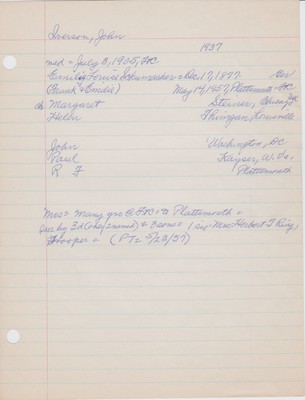 Iverson, John
1937
med = July 3, 1905, FC
Emilie Louise Schumacher = Dec. 17, 1877. Ger
(Frank & Emilie) May 14, 1957, Plattsmouth = FC
ch Margaret Sterner, Chicago
Helen Finnegan, Louisville
John Washington, DC
Paul Kayser, W. Va.
R F Plattsmouth
Mrs = many yrs @ to Plattsmouth =
sur by 3 d & 3 sons = 1 sis = Mrs Herbert T King,
Hooper = (PT = 5/23/57)